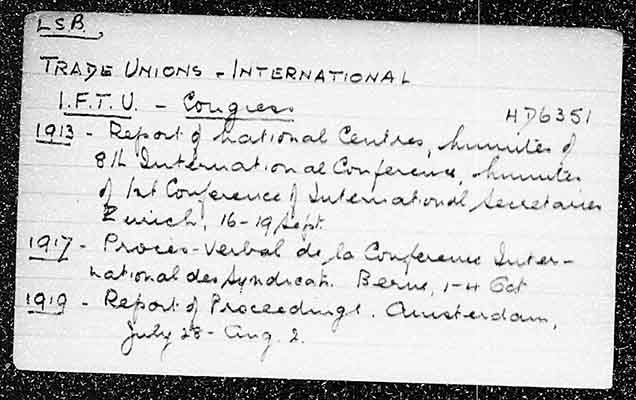 LSB.
TRADE UNIONS - INTERNATIONAL
I.F.T.U. - Congress
HD6351
1913 - Report of National Centres, Minutes of
8th International Conference, Minutes
of 1st Conference of International Secretaries
Zurich, 16-19 Sept.
1917 - Procès-Verbal de la Conference Inter-
national des Syndicats. Berne, 1-4 Oct
1919 - Report of Proceedings. Amsterdam,
July 28 - Aug. 2.